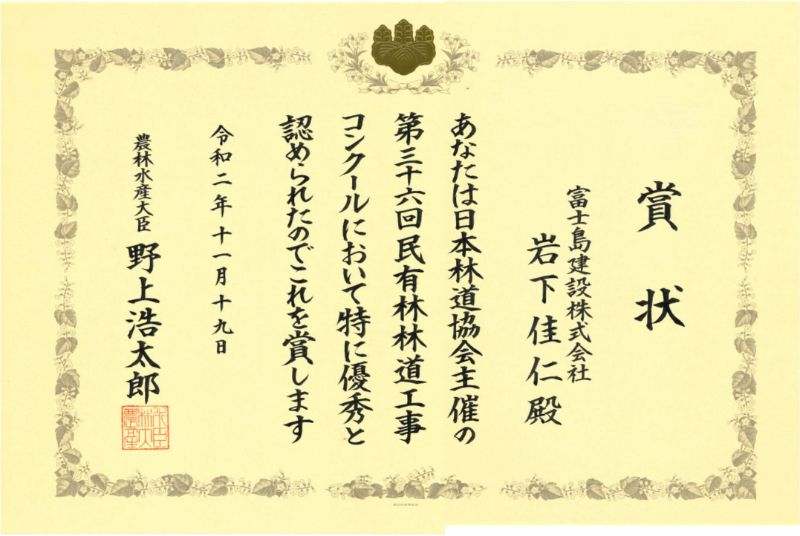 賞状
富士島建設株式会社
岩下佳仁殿
あなたは日本林道協会主催の
第三十六回民有林林道工事
コンクールにおいて特に優秀と
認められたのでこれを賞します
令和二年十一月十九日
農林水産大臣 野上浩太郎